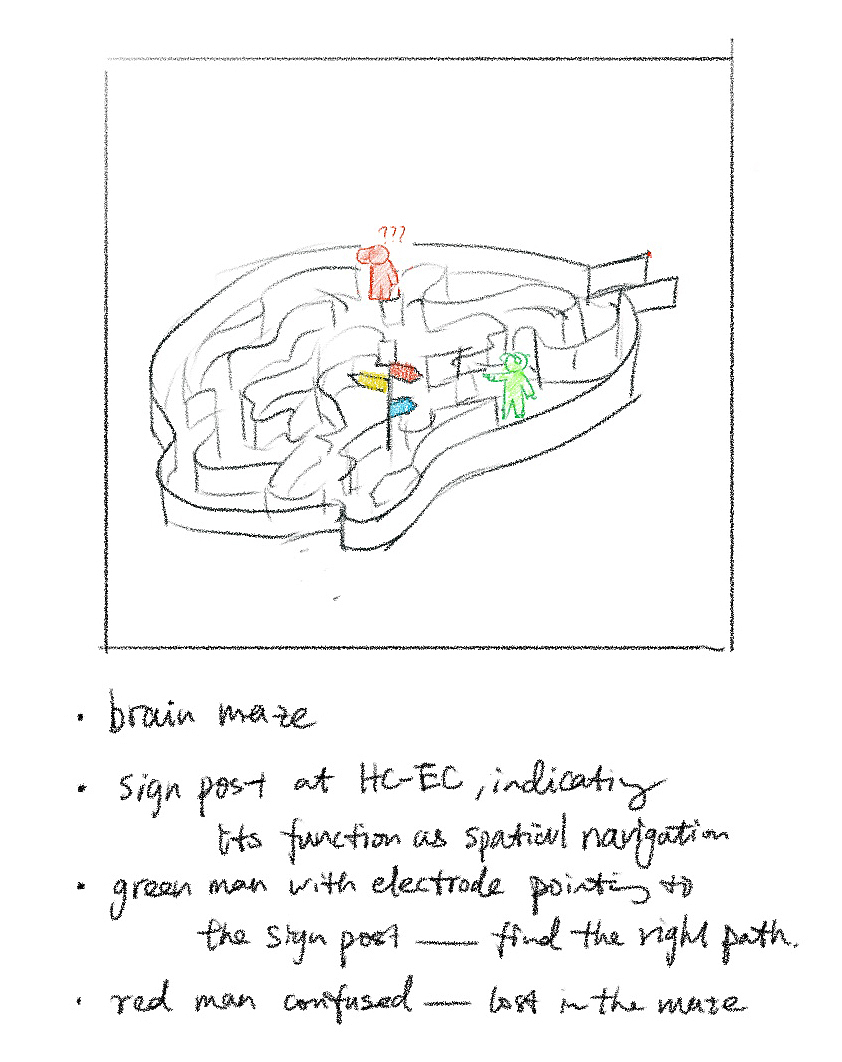 ???
• brain maze
• sign post at HC-EC, indicating
its function as spatial navigation
• green man with electrode pointing to
the sign post — find the right path.
• red man confused — lost in the maze